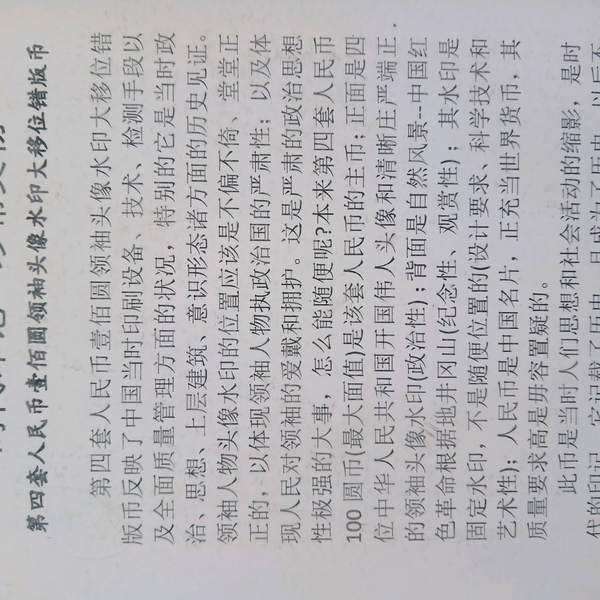 第四套人民币壹佰圆领袖头像水印大移位错版币
第四套人民币壹佰圆领袖头像水印大移位错
版币反映了中国当时印刷设备、技术、检测手段以
及全面质量管理方面的状况，特别的它是当时政
治、思想、上层建筑、意识形态诸方面的历史见证。
领袖人物头像水印的位置应该是不偏不倚、堂堂正
正的，以体现领袖人物执政治国的严肃性；以及体
现人民对领袖的爱戴和拥护。这是严肃的政治思想
性极强的大事，怎么能随便呢?本来第四套人民币
100圆币(最大面值)是该套人民币的主币；正面是四
位中华人民共和国开国伟人头像和清晰庄严端正
的领袖头像水印(政治性)；背面是自然风景--中国红
色革命根据地井冈山(纪念性、观赏性)；其水印是
固定水印，不是随便位置的(设计要求、科学技术和
艺术性)；人民币是中国名片，正充当世界货币，其
质量要求高是毋容置疑的。
此币是当时人们思想和社会活动的缩影，是时
代的印记，它记载了历史，且成为了历史，以后不